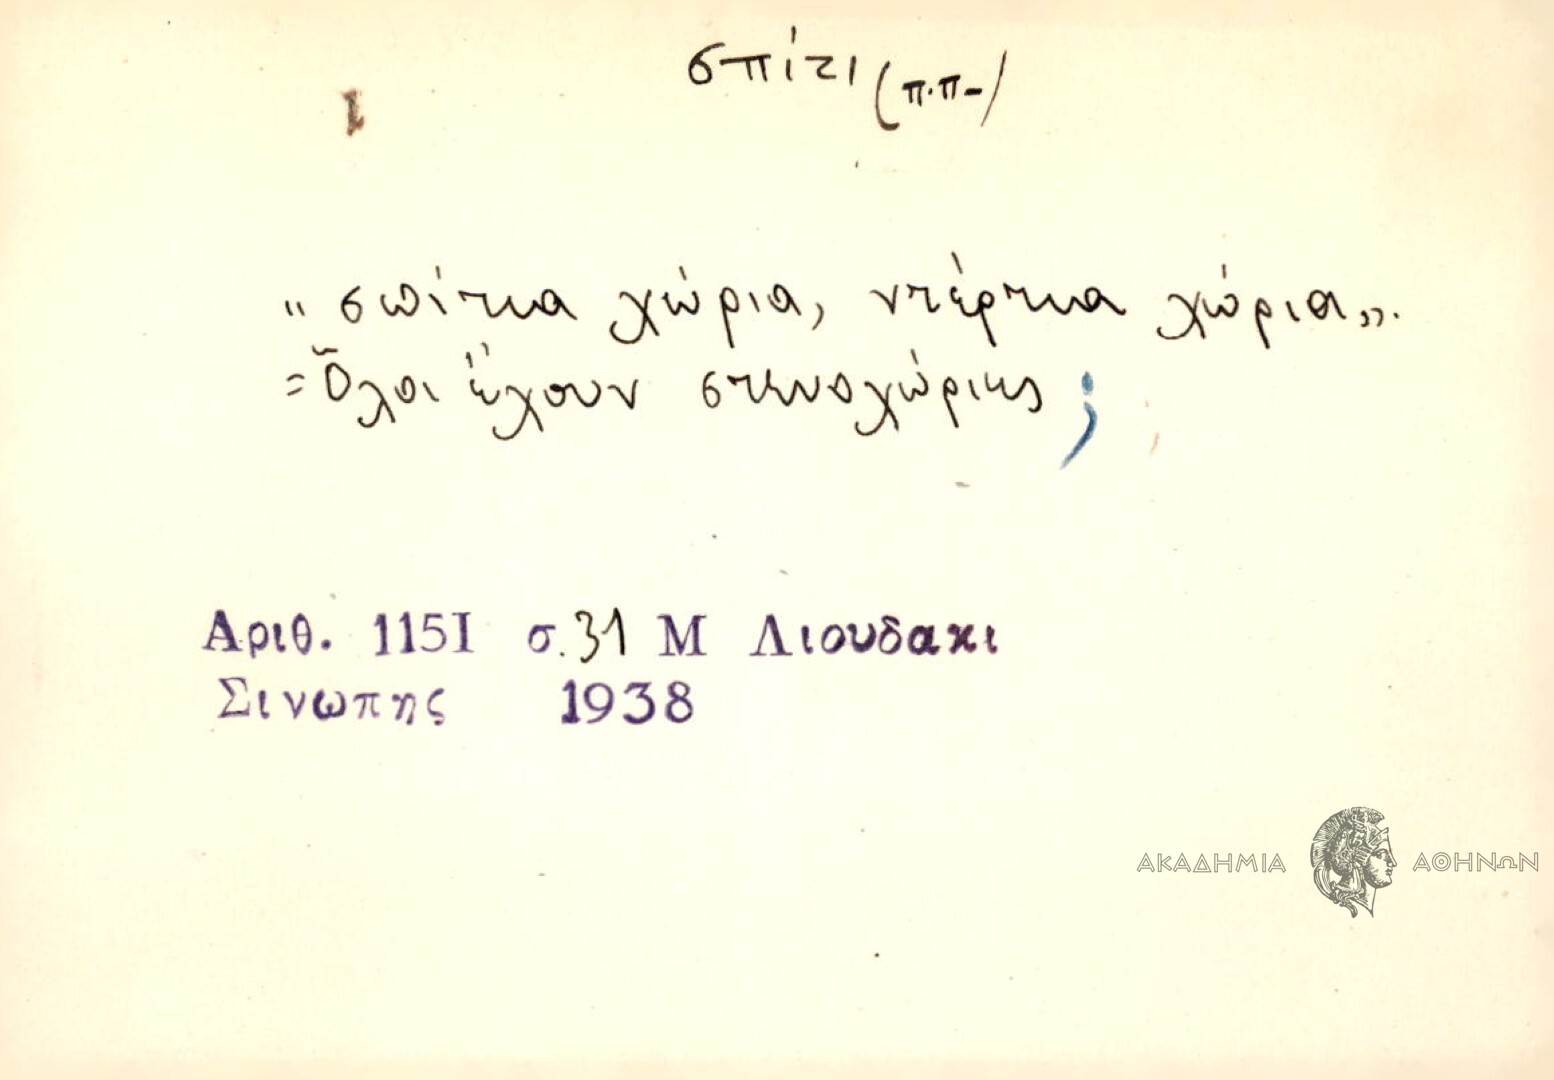 σπίτι (π.π-)
1
"σπίτια χώρια, ντέρτια χώρια".
= Όλοι έχουν στενοχώριες;
Αριθ. 115Ι σ. 31 Μ Λιουδακι
Σινωπης 1938
ΑΚΑΔΗΜΙΑ ΑΘΗΝΩΝ